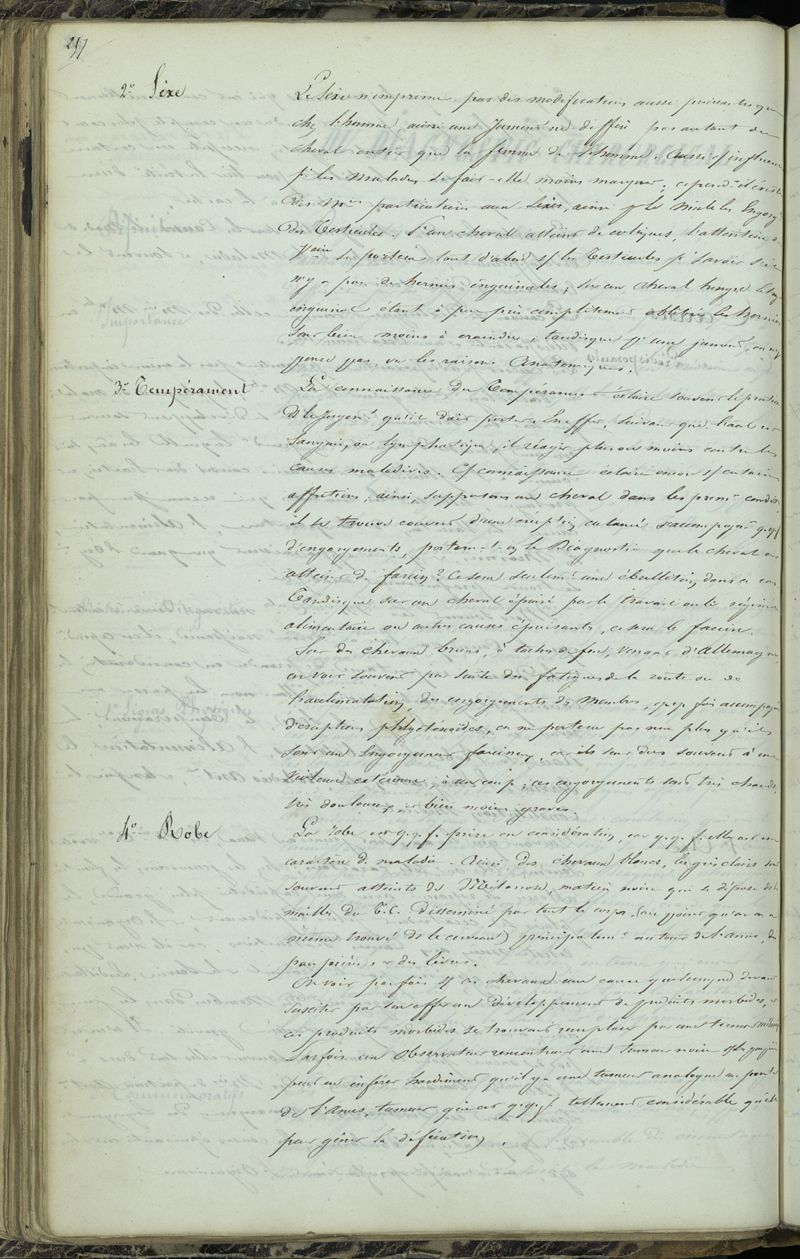 257
2º Sexe
Le Sexe n'imprime pas des modificateurs aussi puissants que
chez l'homme ainsi une Jument ne diffère pas autant du
cheval entier que la femme de l'homme. Aussi s/ influence
s/ les Maladies se fait-elle moins marquer; cepend.t il existe
des M.ies particulières aux Sexes, ainsi s/ le Mâle les Engorg.
des Testicules. S/ un cheval atteint de coliques, l'attention du
V.aire se portera tout d'abord s/ les Testicules p.r savoir s'il
n'y a pas de hernies inguinales; sur un cheval hongre le
inguinal étant à peu près complètement oblitéré les Hernies
sont bien moins à craindre; tandis que p.r une jument, on n'y
pense pas, vu les raisons Anatomiques.
3º Tempérament
La connaissance du Tempérament éclaire souvent le praticien
ds le Jugem.t qu'il doit porter. En effet, suivant que l'anl est
Sanguin, ou lymphatique, il réagit plus ou moins contre les
causes maladives. C/ connaissance éclaire encore s/ certaines
affections; ainsi, supposons un cheval dans les prem.
il se trouve couvert d'une éruption cutanée s'accompagn.t q.q.f
d'engorgements, portera-t-on le Diagnostic que le cheval est
atteint de farcin? Ce sera seulem.t une ébullition dans ce cas
Tandis que sur un cheval épuisé par le travail ou le régime
alimentaire ou autres causes épuisants, ce sera le farcin.
Sur des chevaux bruns, à taches de feu, venant d'Allemagne
on voit souvent par suite des fatigues de la route ou de
l'acclimatation, des engorgements des Membres, q.q. fois accompagnés
d'éruptions phlycténoïdes, on ne portera pas non plus qu'ils
sont un Engorgement farcineux, car ils sont dus souvent à une
violence extérieure, à un coup; ces engorgements sont très chauds
très douloureux et bien moins graves.
4º Robe
La robe est q.q.f. prise en considération, car q.q.f. elle est un
caractère de maladie. Ainsi des chevaux blancs, les gris clairs sont
souvent atteints de Mélanose, matière noire qui se dépose ds les
mailles du T.C. disséminé par tout le corps (au point qu'on en a
même trouvé ds le cerveau) principalem.t autour de l'anus, des
paupières et des lèvres.
On voit parfois s/ ces chevaux une cause quelconque devant
susciter par son effet un développement de produits morbides, et
ces produits morbides se trouvent remplacés par une tumeur mélan.
Parfois un Observateur rencontrant une tumeur noire
peut en inférer hardiment qu'il y a une tumeur analogue au pourt.
de l'Anus, tumeur qui est q.q.f tellement considérable qu'elle
peut gêner la défécation.